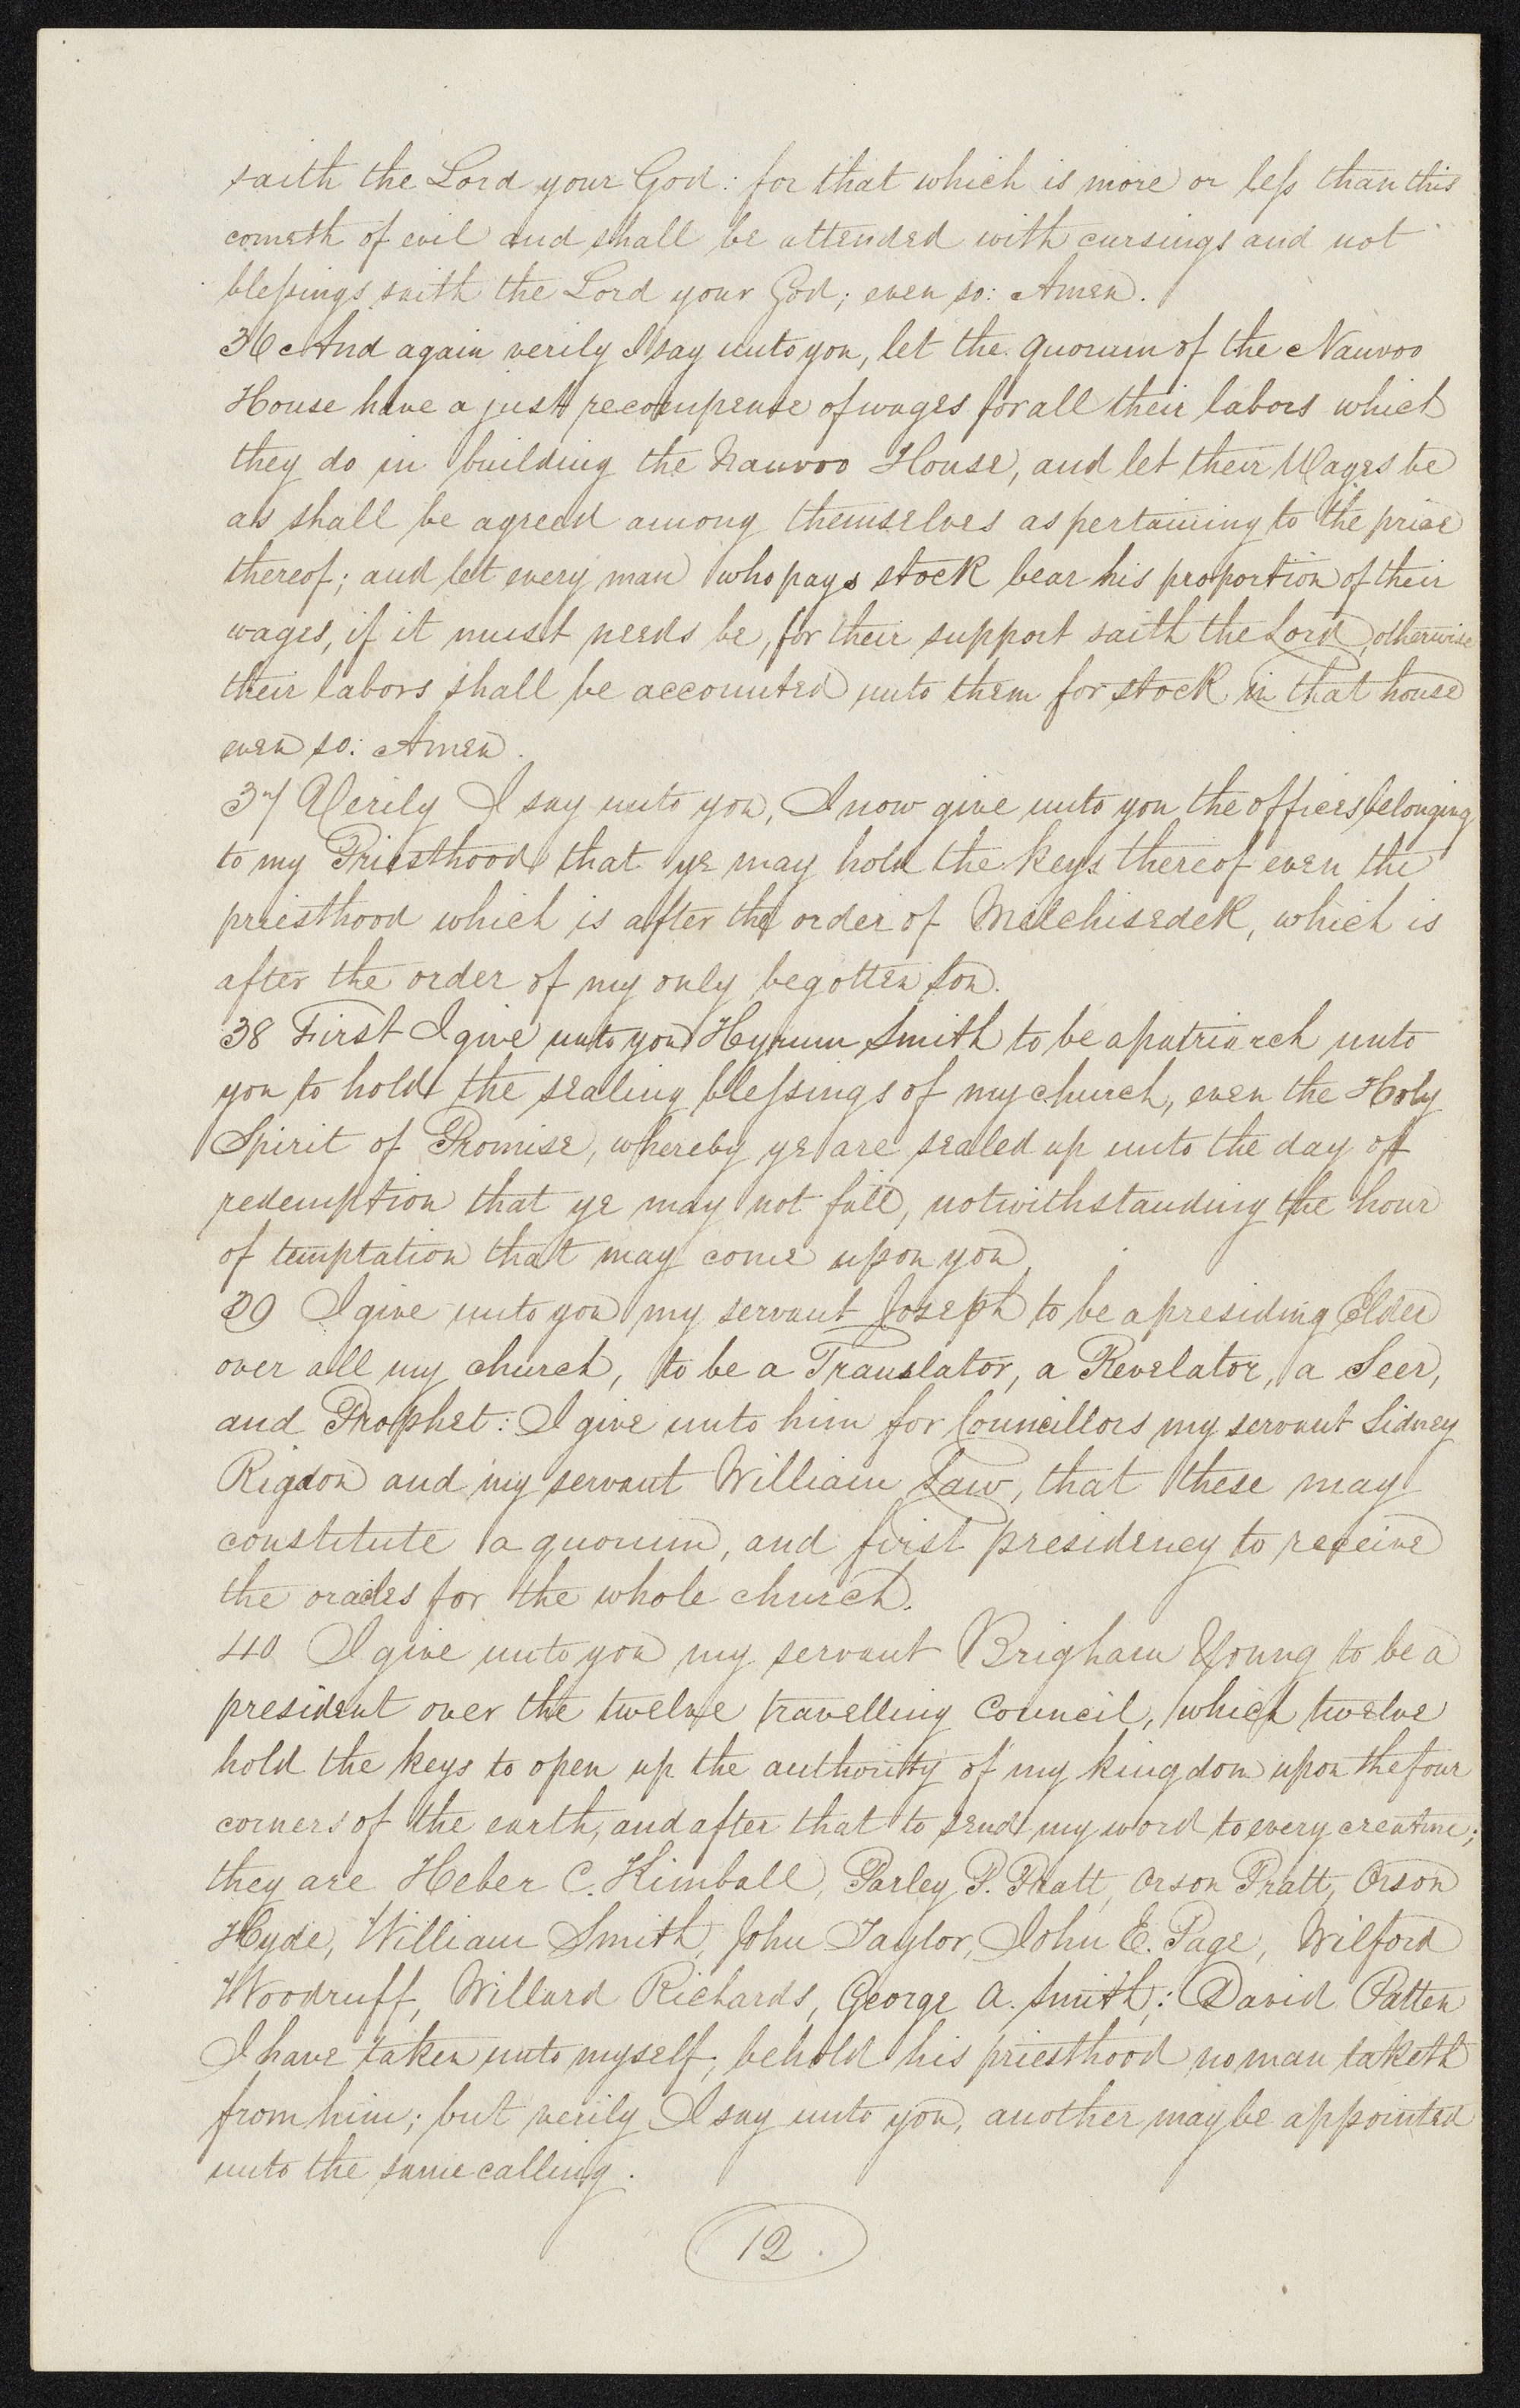 saith the Lord your God: for that which is more or less than this
cometh of evil and shall be attended with cursings and not
blessings saith the Lord your God; even so: Amen.
36 And again verily I say unto you, let the quorum of the Nauvoo
House have a just recompense of wages for all their labors which
they do in building the Nauvoo House, and let their Wages be
as shall be agreed among themselves as pertaining to the price
thereof; and let every man who pays stock bear his proportion of their
wages, if it must needs be, for their support saith the Lord, otherwise
their labors shall be accounted unto them for stock in that house
even so: Amen.
37 Verily I say unto you, I now give unto you the officers belonging
to my Priesthood that ye may hold the keys thereof even the
priesthood which is after the order of Melchisedek, which is
after the order of my only begotten son.
38 First I give unto you Hyrum Smith to be a patriarch unto
you to hold the sealing blessings of my church, even the Holy
Spirit of Promise, whereby ye are sealed up unto the day of
redemption that ye may not fall, notwithstanding the hour
of temptation that may come upon you
39 I give unto you my servant Joseph to be a presiding Elder
over all my church, to be a Translator, a Revelator, a Seer,
and Prophet: I give unto him for Councillors my servant Sidney
Rigdon and my servant William Law, that these may
constitute a quorum, and first presidency to receive
the oracles for the whole church.
40 I give unto you my servant Brigham Young to be a
president over the twelve travelling Council, which twelve
hold the keys to open up the authority of my kingdom upon the four
corners of the earth, and after that to send my word to every creature;
they are Heber C. Kimball, Parley P. Pratt, Orson Pratt, Orson
Hyde, William Smith, John Taylor, John E. Page, Wilford
Woodruff, Willard Richards, George A. Smith; David Patten
I have taken unto myself; behold his priesthood no man taketh
from him; but verily I say unto you, another may be appointed
unto the same calling.
12.